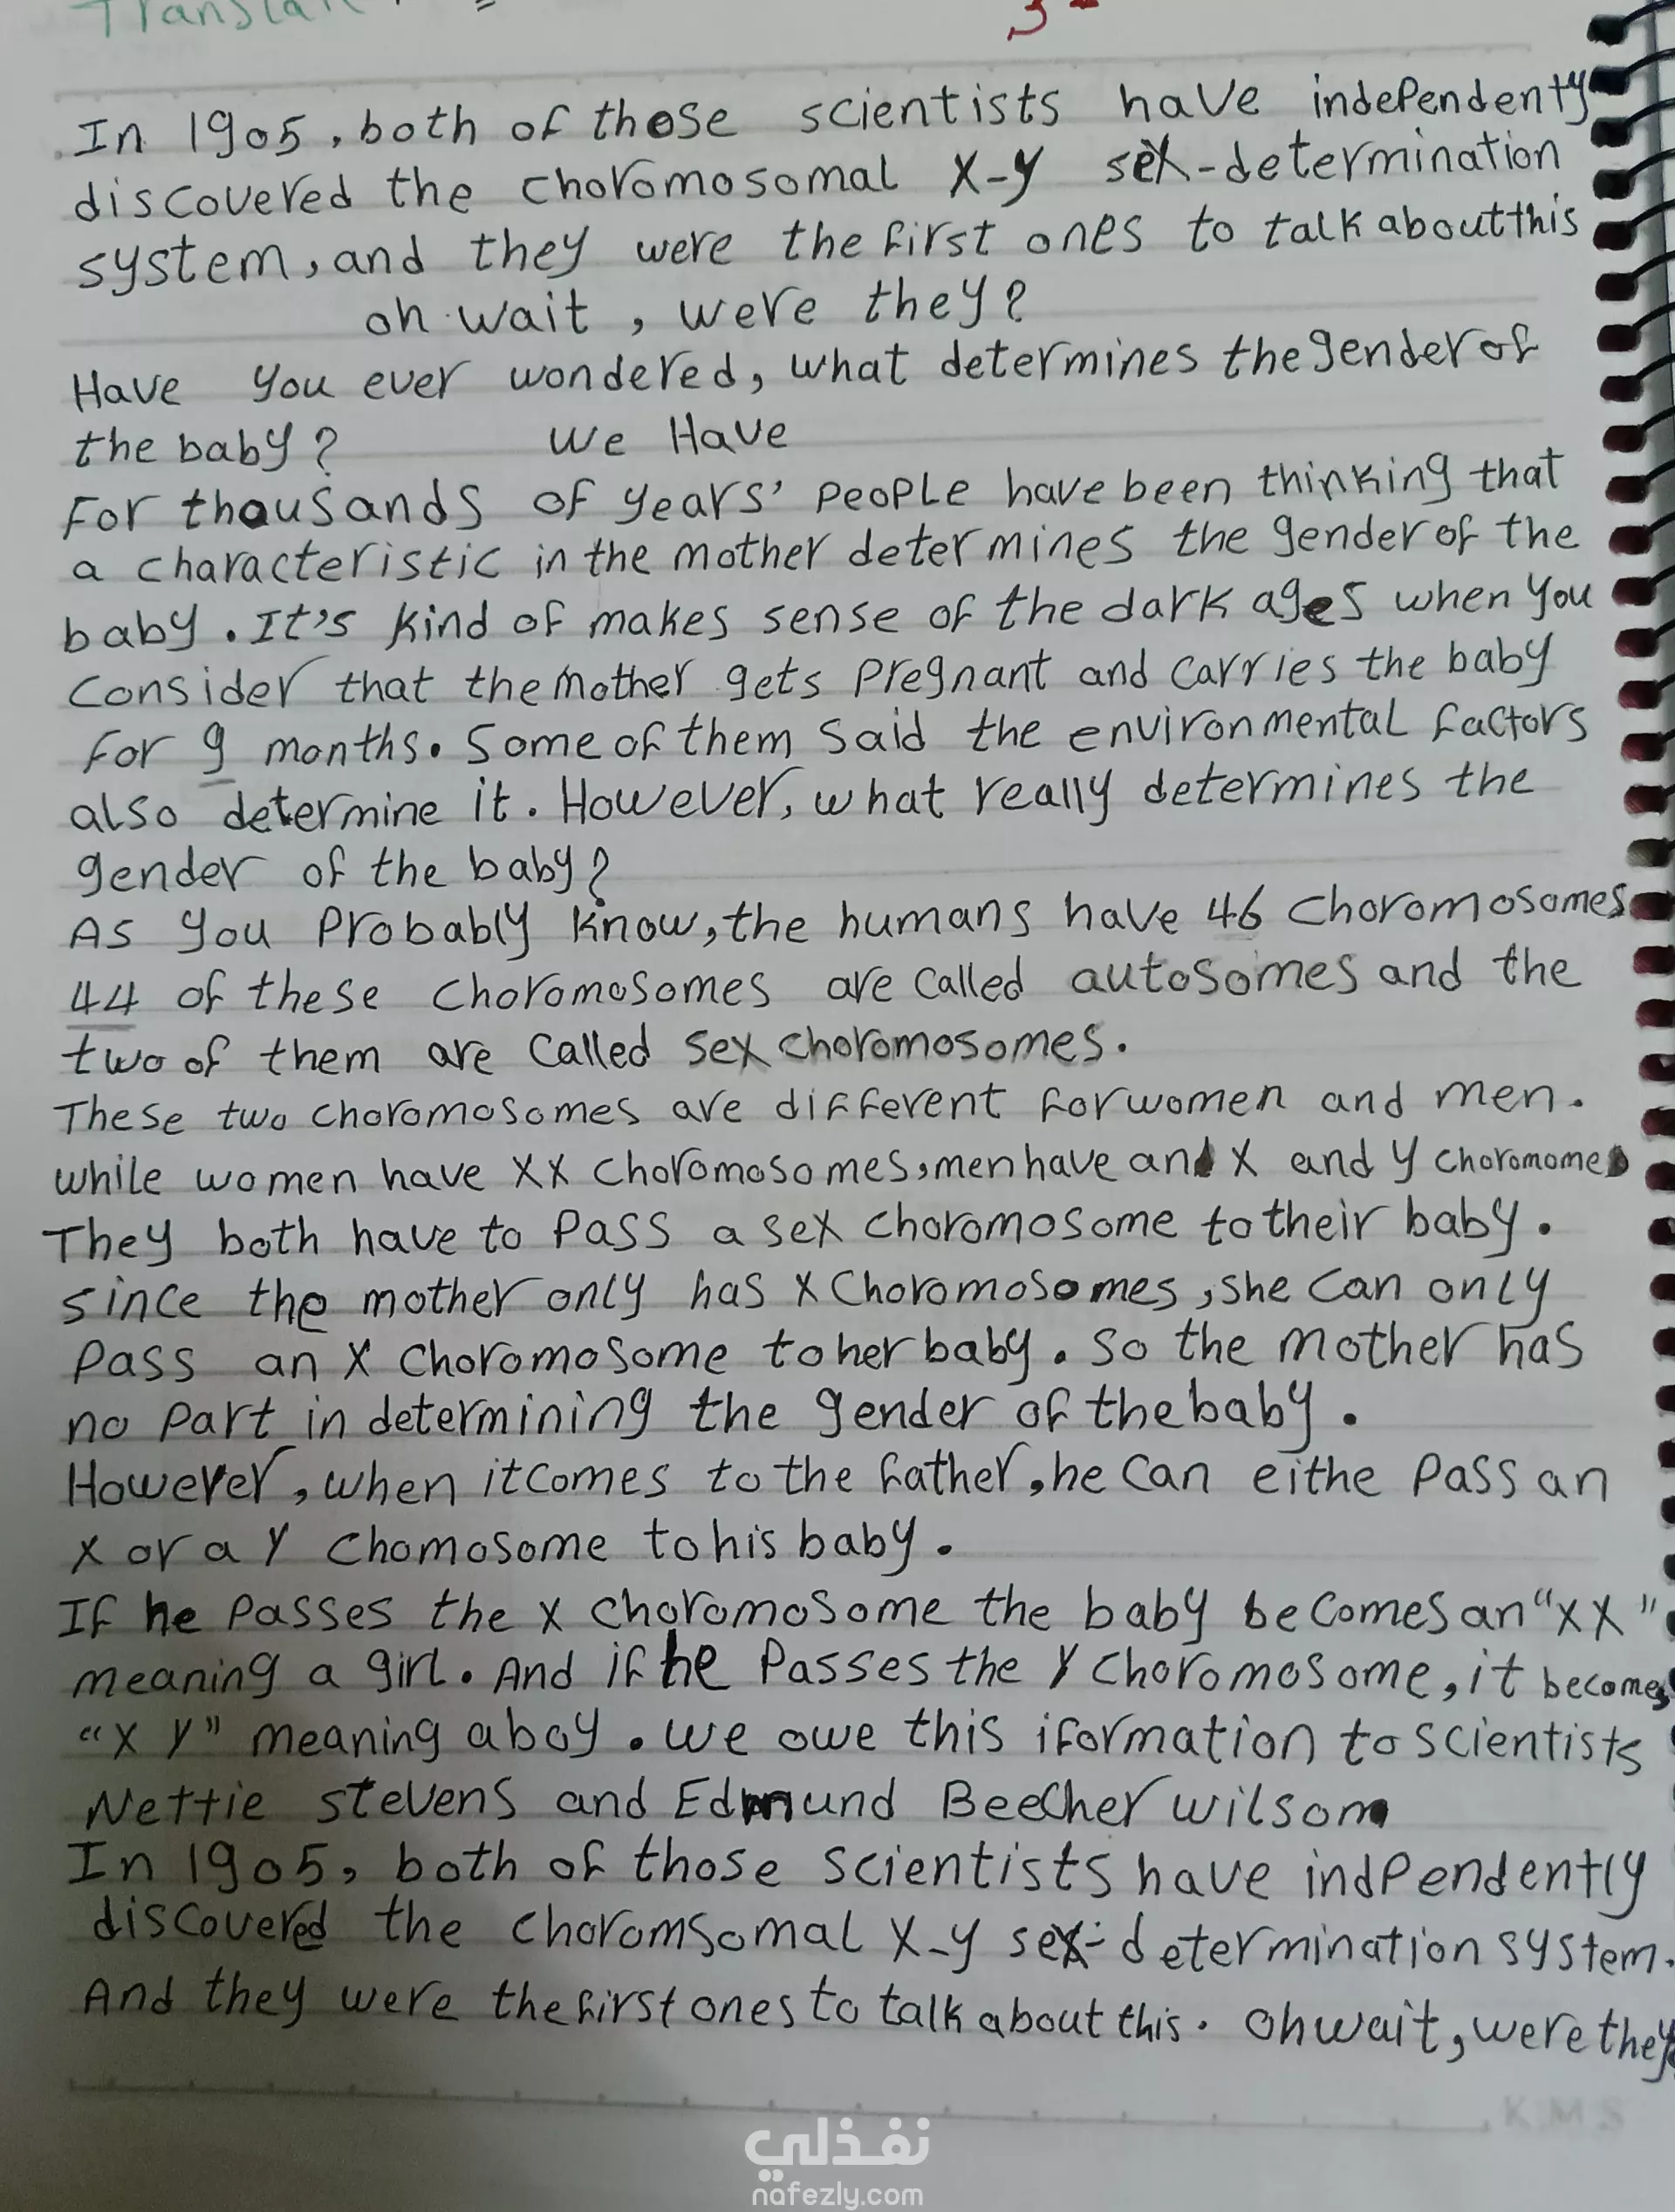 In 1905, both of those scientists have independenty
discovered the choromosomal X-Y sex-determination
system, and they were the first ones to talk about this
oh wait, were they?
Have you ever wondered, what determines the gender of
the baby? We Have
For thousands of years' people have been thinking that
a characteristic in the mother determines the gender of the
baby. It's kind of makes sense of the dark ages when you
consider that the mother gets pregnant and carries the baby
for 9 months. Some of them said the environmental factors
also determine it. However, what really determines the
gender of the baby?
As you probably know, the humans have 46 choromosomes
44 of these choromosomes are called autosomes and the
two of them are called sex choromosomes.
These two choromosomes are different for women and men.
while women have XX choromosomes, men have an X and Y choromome
They both have to pass a sex choromosome to their baby.
since the mother only has X choromosomes, she can only
pass an X choromosome to her baby. so the mother has
no part in determining the gender of the baby.
However, when it comes to the father, he can eithe pass an
X or a Y chomosome to his baby.
If he passes the X choromosome the baby becomes an "XX"
meaning a girl. And if he passes the Y choromosome, it becomes
"X Y" meaning a boy. we owe this iformation to scientists
Nettie stevens and Edmund Beecher wilsom
In 1905, both of those scientists have indpendently
discovered the choromsomal X-Y sex-determination system.
And they were the first ones to talk about this. Oh wait, were they
K.M.S
نفذلي
nafezly.com